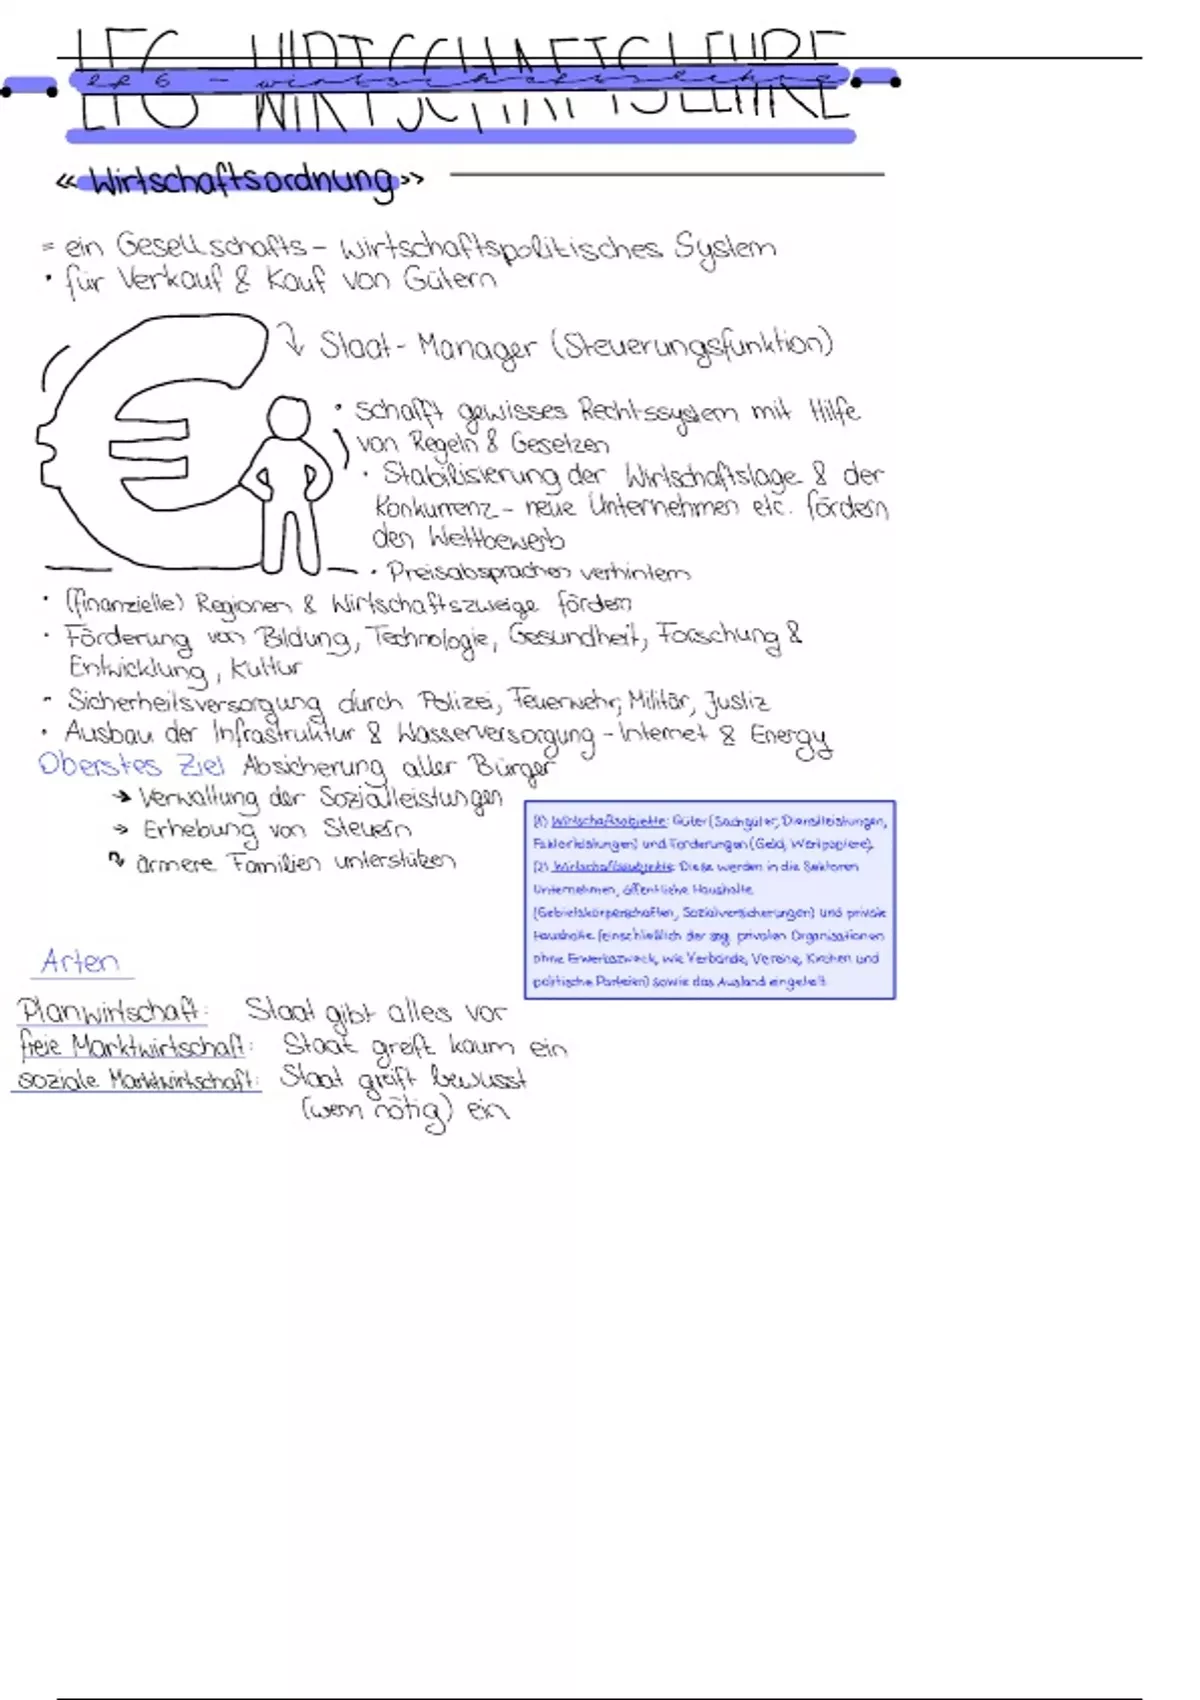 LF6 WIRTSCHAFTSLEHRE
LF 6 - wirtschaftslehre
« Wirtschaftsordnung »
= ein Gesellschafts- wirtschaftspolitisches System
• für Verkauf & Kauf von Gütern
Staat- Manager (Steuerungsfunktion)
• schafft gewisses Rechtssystem mit Hilfe
von Regeln & Gesetzen
• Stabilisierung der Wirtschaftslage & der
Konkurrenz - neue Unternehmen etc. fördern
den Wettbewerb
• Preisabsprachen verhintern
• (finanzielle) Regionen & Wirtschaftszweige fördern
• Förderung von Bildung, Technologie, Gesundheit, Forschung &
Entwicklung, Kultur
- Sicherheitsversorgung durch Polizei, Feuerwehr, Militär, Justiz
• Ausbau der Infrastruktur & Wasserversorgung - Internet & Energy
Oberstes Ziel Absicherung aller Bürger
→ Verwaltung der Sozialleistungen
→ Erhebung von Steuern
ärmere Familien unterstützen
(1) Wirtschaftsobjekte: Güter (Sachgüter, Dienstleistungen,
Faktorleistungen) und Forderungen (Geld, Wertpapiere).
(2) Wirtschaftssubjekte: Diese werden in die Sektoren
Unternehmen, öffentliche Haushalte
(Gebietskörperschaften, Sozialversicherungen) und private
Haushalte (einschließlich der sog. privaten Organisationen
ohne Erwerbszweck, wie Verbände, Vereine, Kirchen und
politische Parteien) sowie das Ausland eingeteilt.
Arten
Planwirtschaft: Staat gibt alles vor
freie Marktwirtschaft: Staat greift kaum ein
soziale Marktwirtschaft: Staat greift bewusst
(wenn nötig) ein